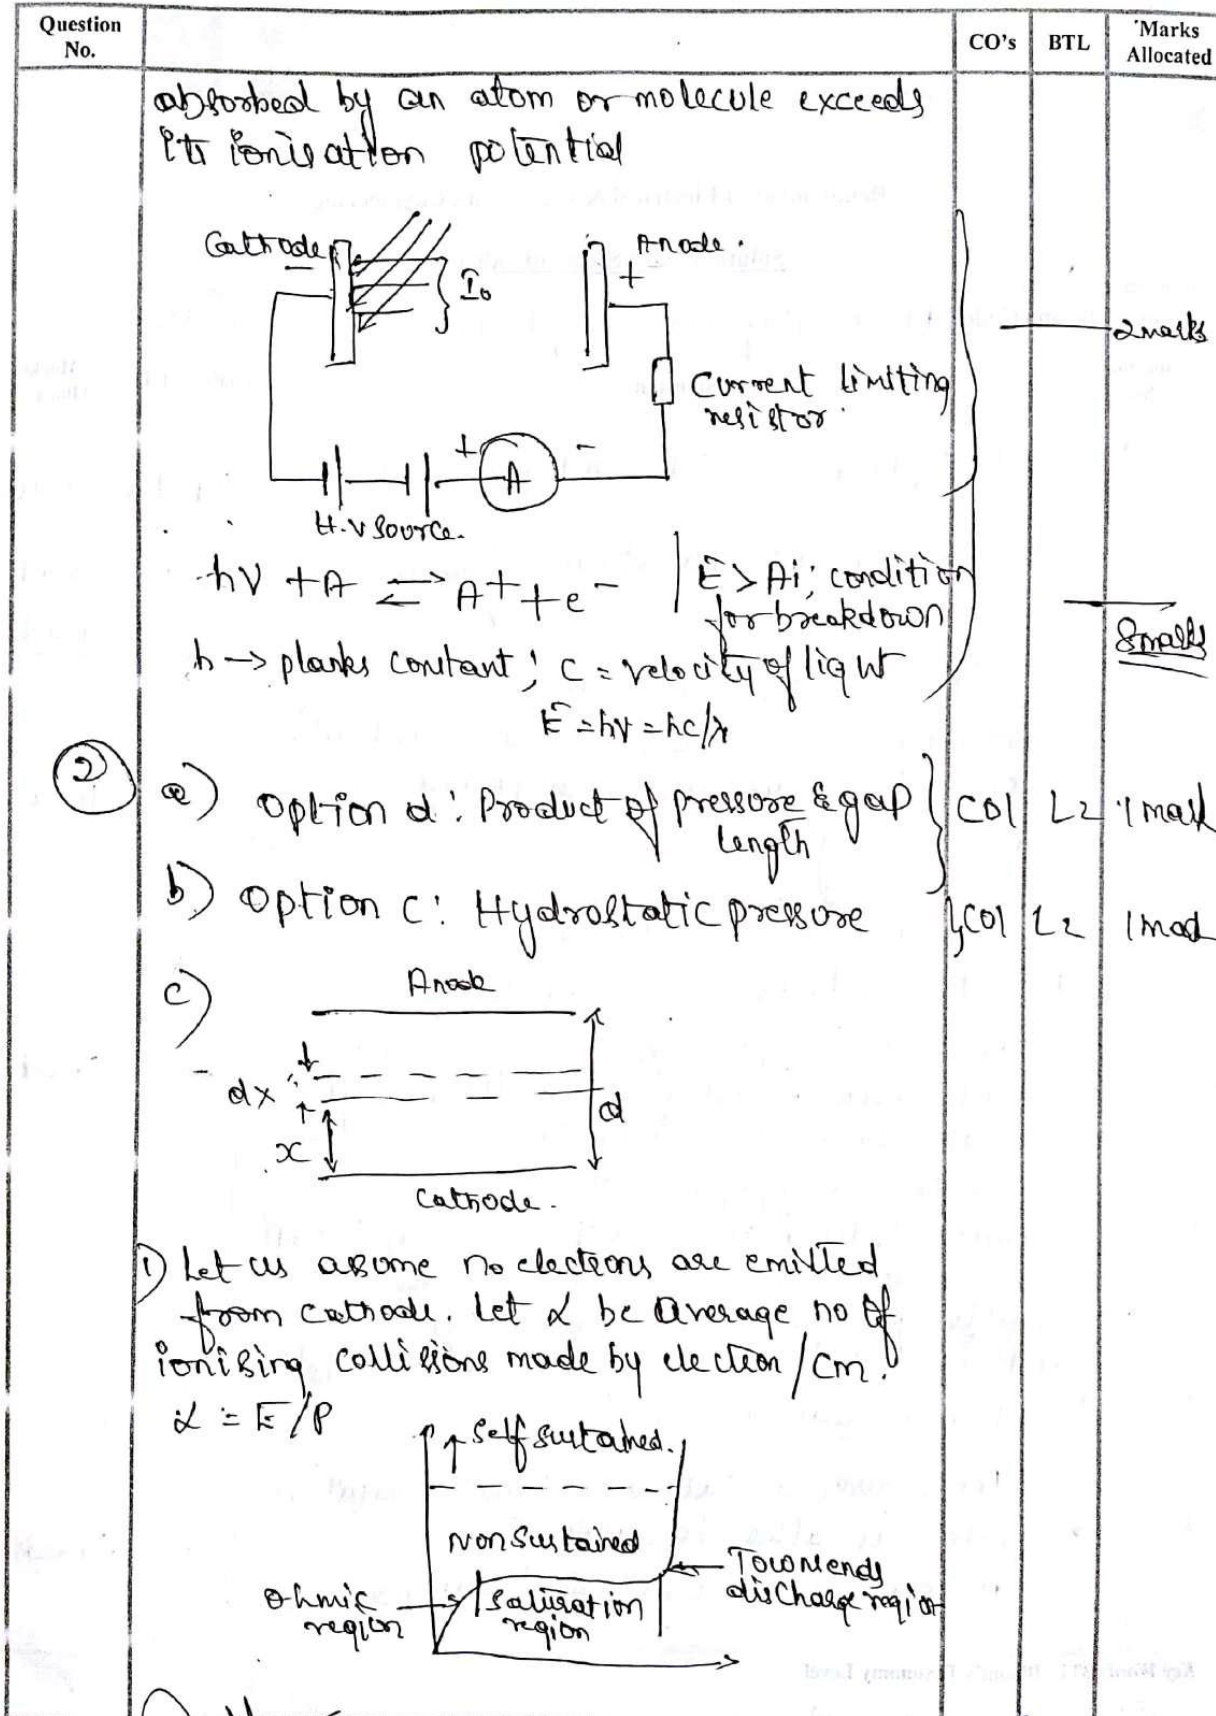 Question No.
CO's
BTL
Marks Allocated
absorbed by an atom or molecule exceeds
its ionisation potential
Cathode
Anode.
−
+
I₀
2 marks
Current limiting
resistor.
+
−
A
H.V source.
hν + A ⇌ A⁺ + e⁻ | E > Ai; condition
for breakdown
8 marks
h → planks constant; C = velocity of light
E = hν = hc/λ
2
a) Option d: Product of pressure & gap length } CO1 L2 1 mark
b) Option C: Hydrostatic pressure } CO1 L2 1 mark
c)
Anode
dx
d
x
Cathode.
1) Let us assume no electrons are emitted
from cathode. Let α be average no of
ionising collisions made by electron/cm.
α = E/P
↑ Self sustained.
Non Sustained
Townsends
discharge region
Ohmic
region
Saturation
region